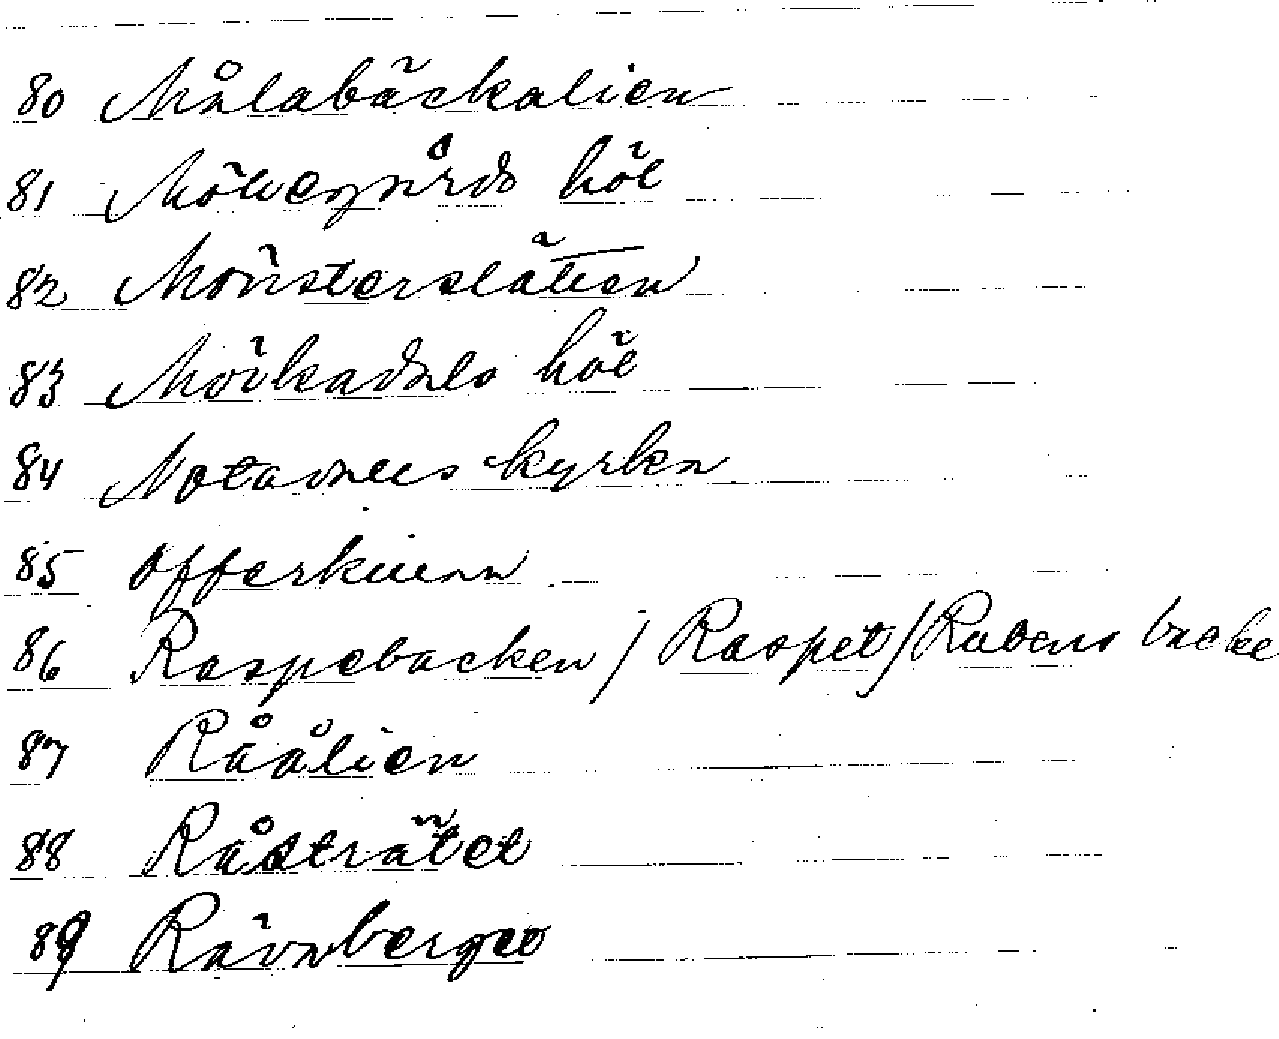 80 Målabäckalien
81 Möllegårds höl
82 Mönsterslätten
83 höl
84 kyrka
85 Offerkullen
86 Raspebacken / Raspet / Rabens backe
87 Råålien
88 Råsträtet
89 Rävaberget